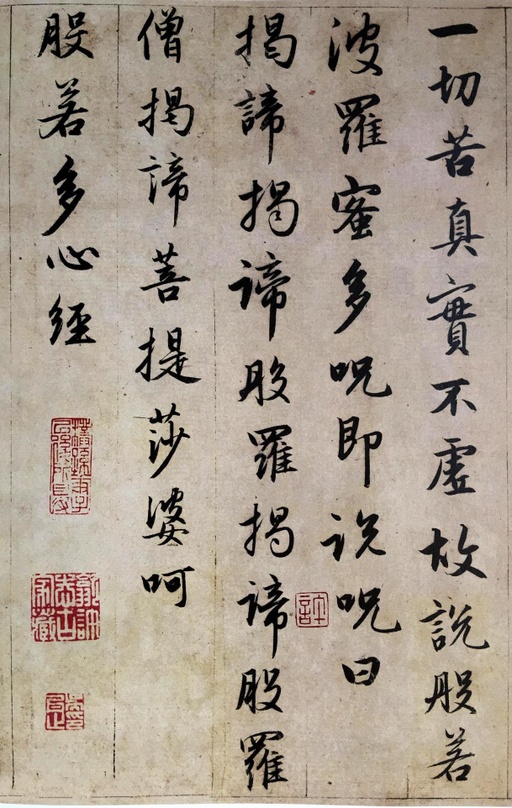 一切苦真實不虛故說般若
波羅蜜多呪即说呪曰
揭諦揭諦般羅揭諦般羅
僧揭諦菩提莎婆呵
般若多心經